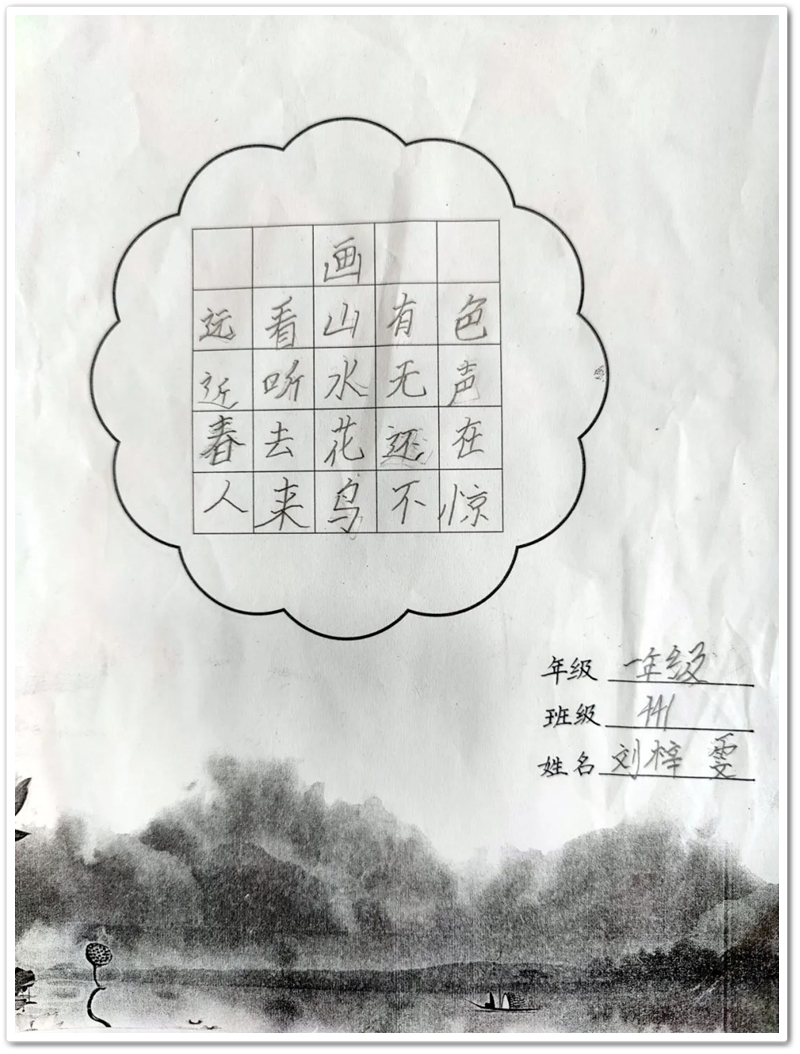 画
远看山有色
近听水无声
春去花还在
人来鸟不惊
年级 一年级
班级
姓名 刘梓雯